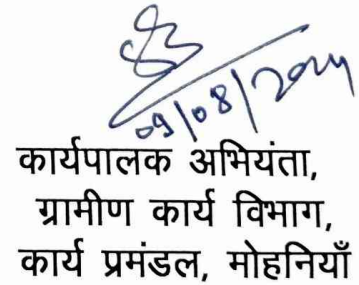 09/08/2024
कार्यपालक अभियंता,
ग्रामीण कार्य विभाग,
कार्य प्रमंडल, मोहनियाँ